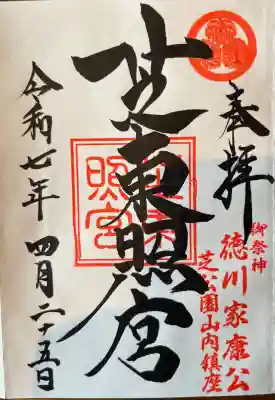 奉拝
御祭神
徳川家康公
芝公園山内鎮座
芝東照宮
芝東照宮
令和七年 四月二十五日